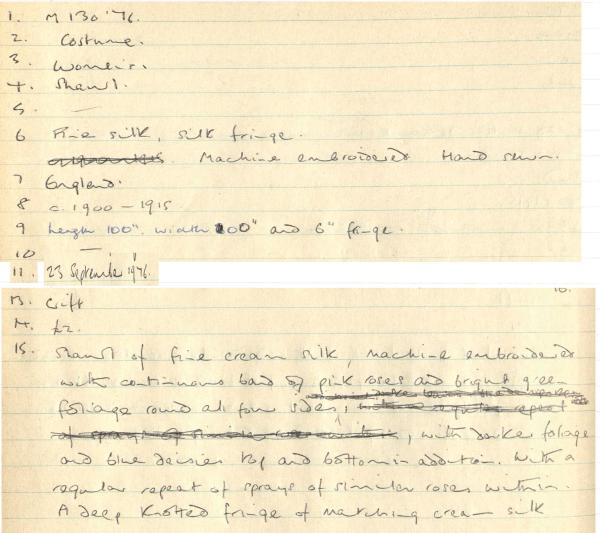 1. M 130 '76.
2. Costume.
3. Women's.
4. Shawl.
5. —
6 Fine silk, silk fringe.
Machine embroidered Hand sewn.
7 England.
8 c. 1900 – 1915
9 Length 100". width 100" and 6" fringe.
10 —
11. 23 September 1976.
13. Gift
14. £2.
15. Shawl of fine cream silk, machine embroidered
with continuous band of pink roses and bright green
foliage round all four sides, with a regular repeat
of sprays of similar roses within, with darker foliage
and blue daisies top and bottom in addition. With a
regular repeat of sprays of similar roses within.
A deep knotted fringe of matching cream silk